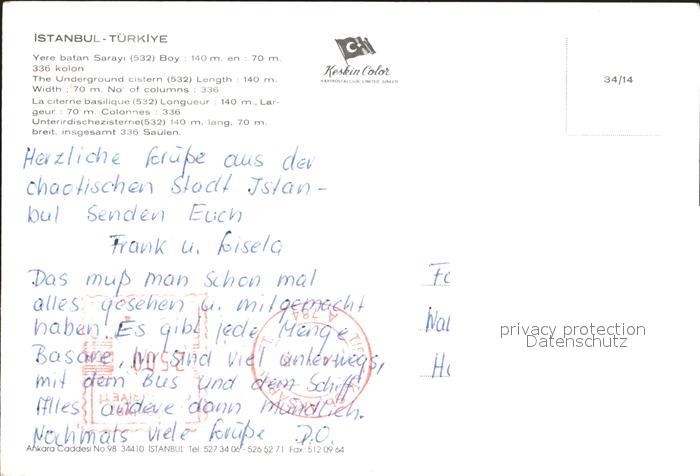 İSTANBUL-TÜRKİYE
Yere batan Sarayı (532) Boy : 140 m. en : 70 m.
336 kolon
The Underground cistern (532) Length : 140 m.
Width : 70 m. No of columns : 336
La citerne basilique (532) Longueur : 140 m., Lar-
geur : 70 m. Colonnes : 336
Unterirdischezisterne(532) 140 m. lang, 70 m.
breit. insgesamt 336 Saülen.
Keskin Color
34/14
Herzliche Grüße aus der
chaotischen Stadt Istan-
bul senden Euch
Frank u. Gisela
Das muß man schon mal
alles gesehen u. mitgemacht
haben. Es gibt jede Menge
Basare, wir sind viel unterwegs,
mit dem Bus und dem Schiff.
Alles andere dann mündlich.
Nochmals viele Grüße D.O.
privacy protection
Datenschutz
Ankara Caddesi No.98 34410 İSTANBUL Tel: 527 34 06 - 526 52 71 Fax: 512 09 64